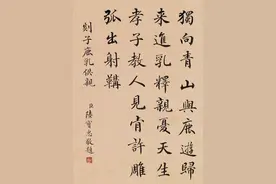 獨向青山與鹿遊歸
來進乳釋親憂天生
孝子教人見肯許雕
弧出射韝
剡子鹿乳供親
臣陸寶忠敬題